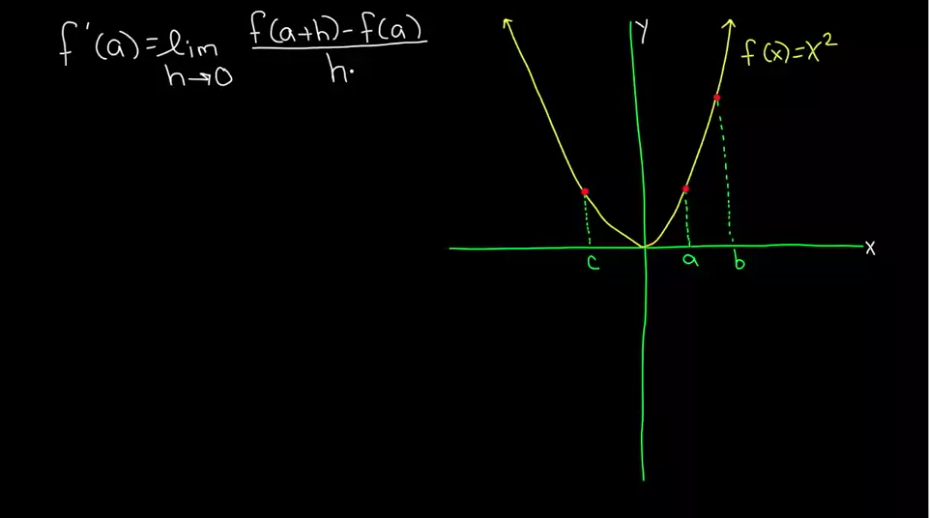 f'(a)=lim h→0 f(a+h)-f(a)/h
y
f(x)=x²
x
c
a
b